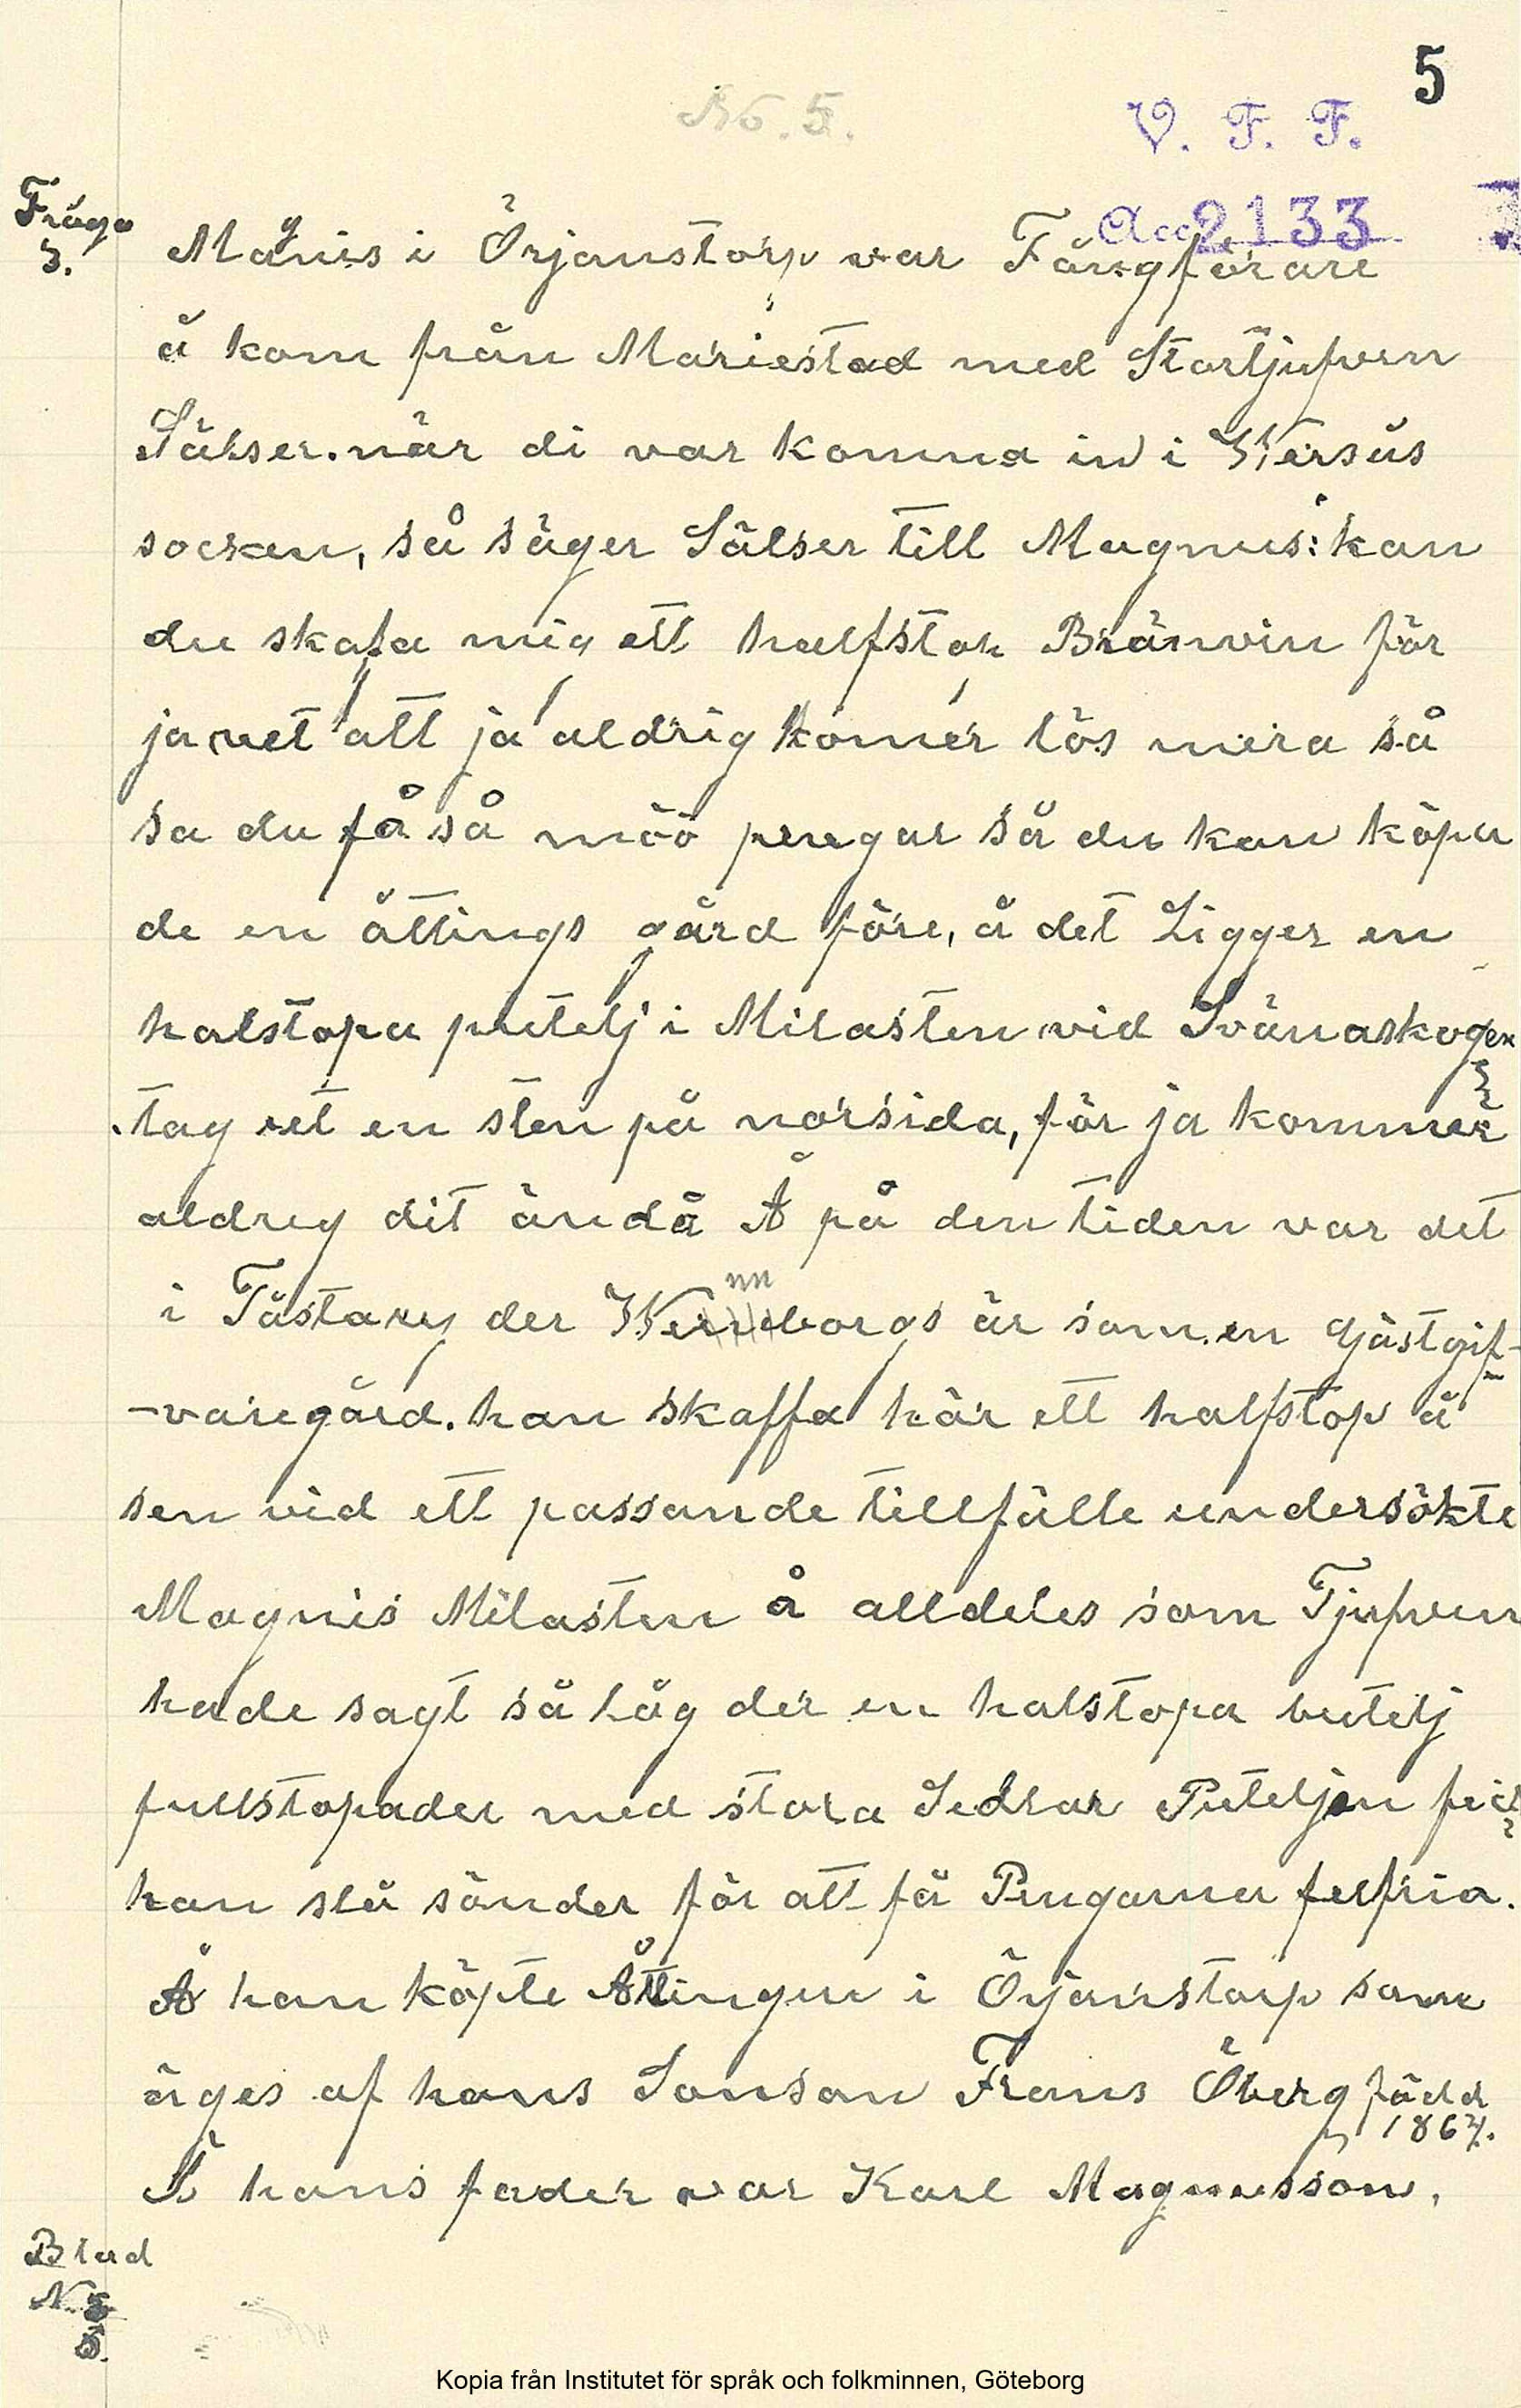 5
No. 5.
V. F. F.
Acc 2133
Fråga
3.
Magnis i Örjanstorp var Fångförare
å kom från Mariestad med Stortjufven
Sälser. när di var komna in i Wersås
socken, så säger Sälser till Magnus: kan
du skafa mig ett halfstop Bränvin för
ja vet att ja aldrig komer lös mera så
sa du få så möö pengar så du kan köpa
de en åttings gård före, å det Ligger en
halstopa putelj i Milasten vid Svänaskogen
tag ut en sten på norsida, för ja kommer
aldrig dit ändå Å på den tiden var det
i Tåstarp der Wennborgs är som en Gjästgif-
-varegård. han skaffa här ett halfstop å
sen vid ett passande tillfälle undersökte
Magnis Milasten å alldeles som Tjufven
hade sagt så låg der en halstopa butelj
fullstopader med stora Sedlar Puteljen fick
han slå sönder för att få Pengarna felfria.
Å han köpte Åttingen i Örjanstorp som
äges af hans Sonson Frans Öberg född
1867.
Å hans fader var Karl Magnusson,
Blad
N. 5
5.
Kopia från Institutet för språk och folkminnen, Göteborg